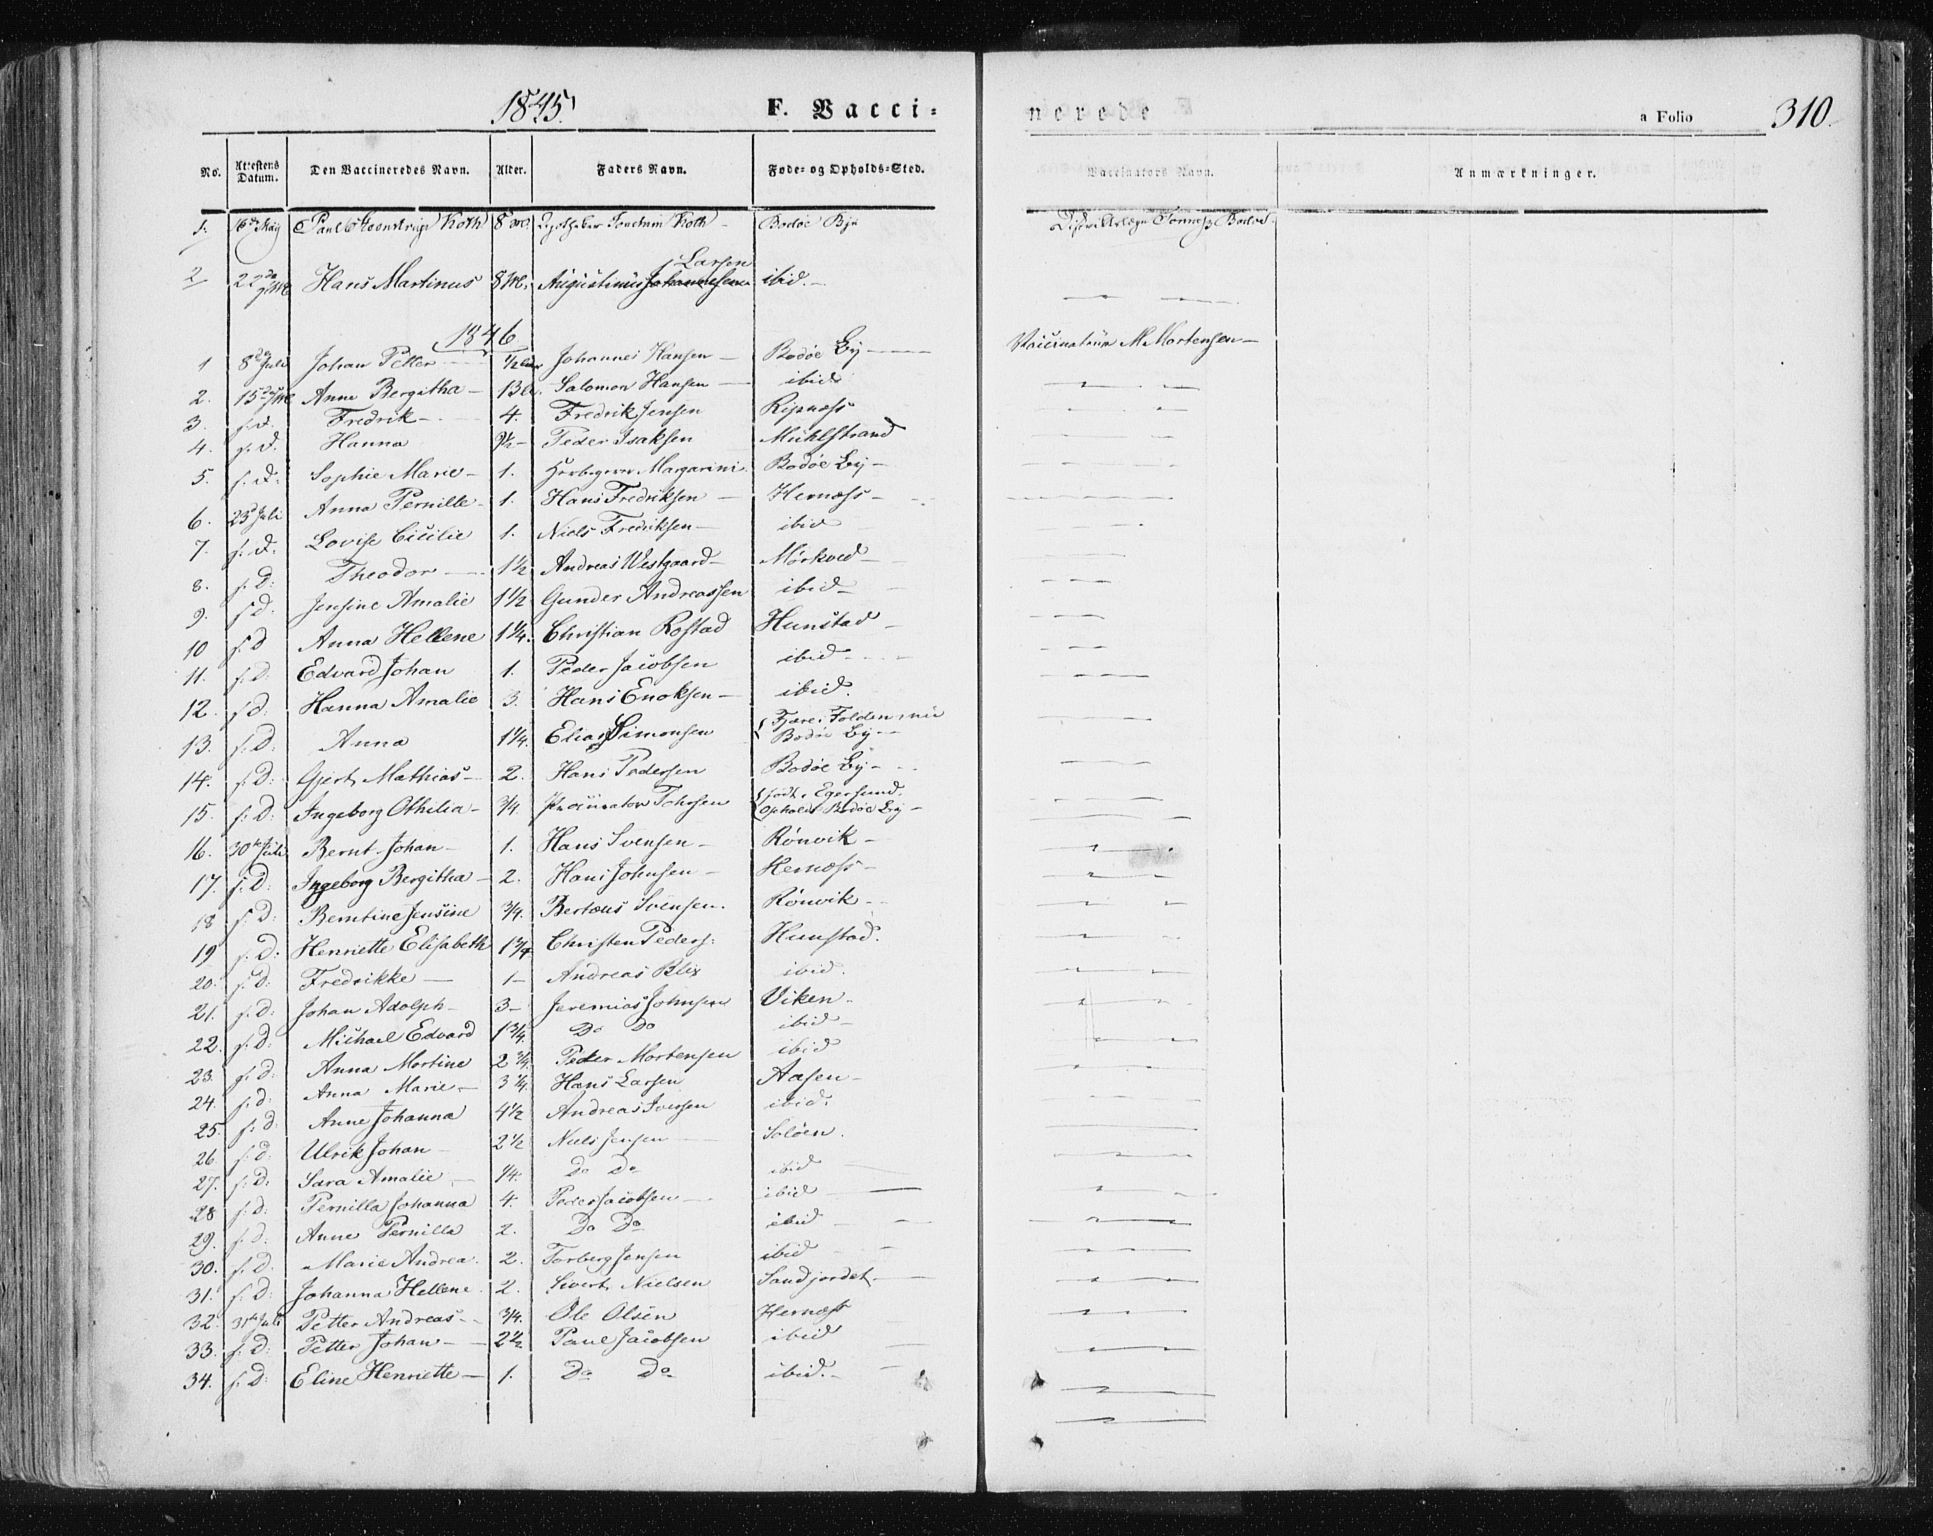 1845.
F. Vacci-
nerede
a Folio
310.
No. Attestens Datum. Den Vaccineredes Navn. Alder. Faders Navn. Føde- og Opholds-Sted. Vaccinators Navn. Anmærkninger.
1. Paul Steenstrup Koth 8 Koth Bodöe Bye
Larsen
2 22 Hans Martinus 8 M. Augustinus Johannesen ibid.
1846
1 8 Juli Johan Petter ½ Johannes Hansen Bodöe By Vaccinatrice M Mortensen
2. 15 Anne Bergitha 13 Salomon Hansen ibid
3. s. d. Fredrik 4. Fredrik Jensen Ripnæss
4. s. d. Hanna 9½ Peder Isaksen Mühlstrand
5. s. d. Sophie Marie 1. Margarini Bodöe By
6. 23 Juli Anna Pernille 1. Hans Fredriksen Hernæss
7. s. d. Lovise Cicilie 1. Niels Fredriksen ibid
8. s. D: Theodor 1½ Andreas Westgaard Mörkved
9. s d. Jensine Amalie 1½ Gunder Andreassen ibid
10 s. d Anna Hellene 1¼. Christian Rostad Hunstad
11. s. d. Edvard Johan 1. Peder Jacobsen ibid
12. s d. Hanna Amalie 3. Hans Enoksen ibid.
13. s. D: Anna 1¼. Elias Simonsen { Fjære i Folden, nu Bodöe By
14. s. D: Gjert Mathias 2. Hans Pedersen Bodöe By
15. s: D: Ingeborg Othelia ¾. Procurator { født i Egersund. Ophold Bodöe By
16. 30te Juli Bernt Johan 1. Hans Svensen Rönvik
17. s: D: Ingeborg Bergitha 2. Hans Johnsen Hernæss
18 s: D: Berntine Jensine ¾. Bertæus Svensen. Rönvik
19 s. D: Henriette Elisabeth 1¾ Christen Peders: Hunstad.
20. s. D: Fredrikke 1 Andreas Blix ibid.
21. s. D: Johan Adolph 3 Jeremias Johnsen Viken
22. s. D: Michael Edvard 1¾. Do Do ibid
23. s. D: Anna Martine 2¾. Peder Mortensen ibid
24. s: D: Anna Marie 3¼. Hans Larsen Aasen
25. s: D: Anne Johanna 4½ Andreas Iversen ibid.
26 s. D: Ulrik Johan 2½ Niels Jensen Solöen.
27. s: D: Sara Amalie ¼. Do Do ibid
28 s: D: Pernilla Johanna 4. Peder Jacobsen ibid
29. s: D: Anne Pernilla 2. Do Do ibid
30. s. D: Marie Andrea. 2. Torberg Jensen ibid
31. s: D: Johanna Hellene. 2. Sivert Nielsen Sandjordet.
32. 31te Juli Petter Andreas ¾. Ole Olsen Hernæss
33. s: D. Petter Johan 2½ Paul Jacobsen ibid
34. s. D: Eline Henriette 1. Do Do ibid.